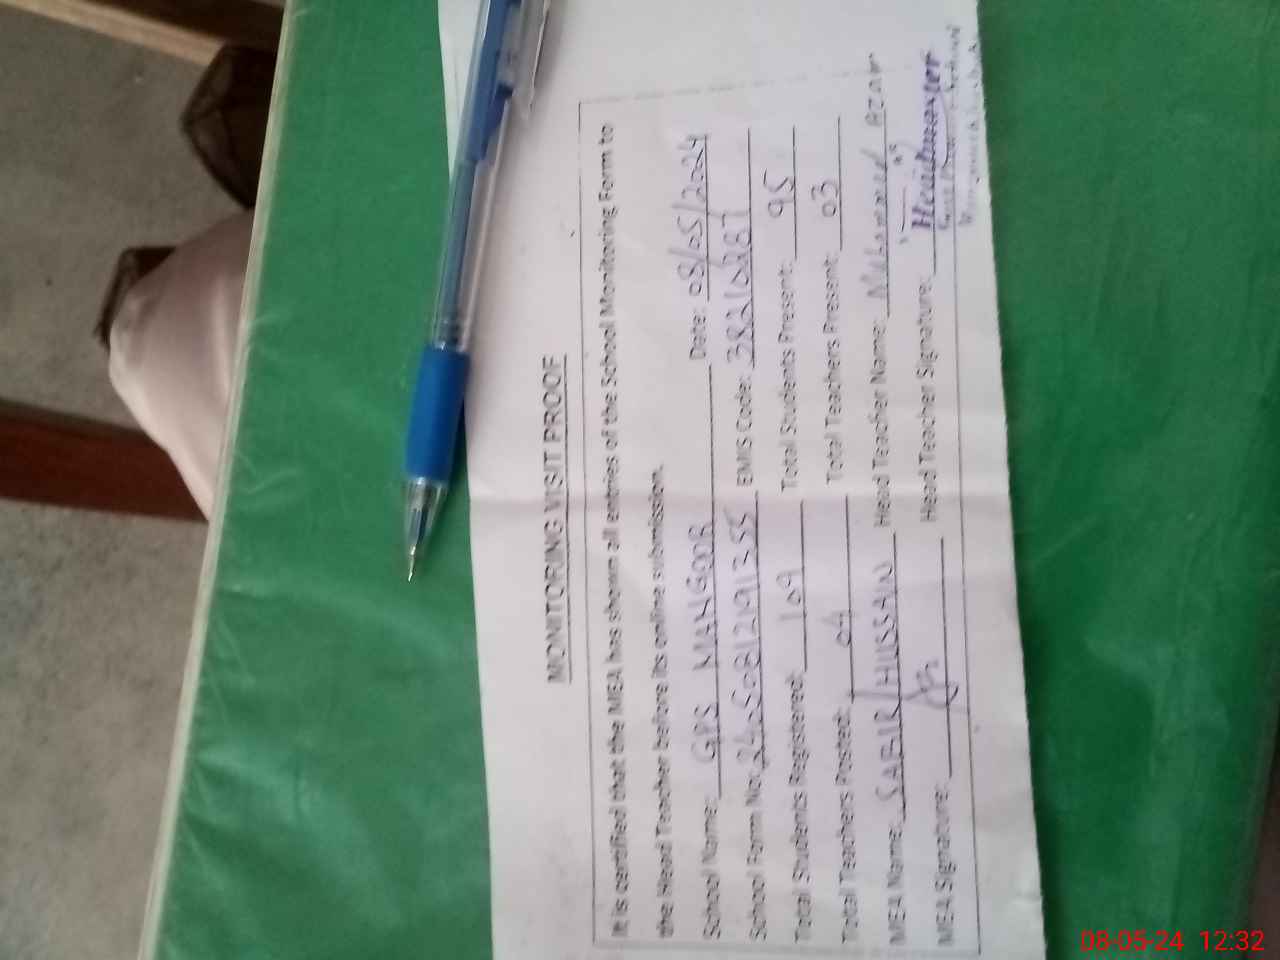 MONITORING VISIT PROOF
It is certified that the MEA has shown all entries of the School Monitoring Form to
the Head Teacher before its online submission.
School Name: GPS MANGOOR Date: 08/05/2024
School Form No: 24050812191355 EMIS Code:
Total Students Registered: 109 Total Students Present: 95
Total Teachers Posted: 04 Total Teachers Present: 03
MEA Name: SABIR HUSSAIN Head Teacher Name: Azam
MEA Signature: Head Teacher Signature:
Headmaster
08-05-24 12:32